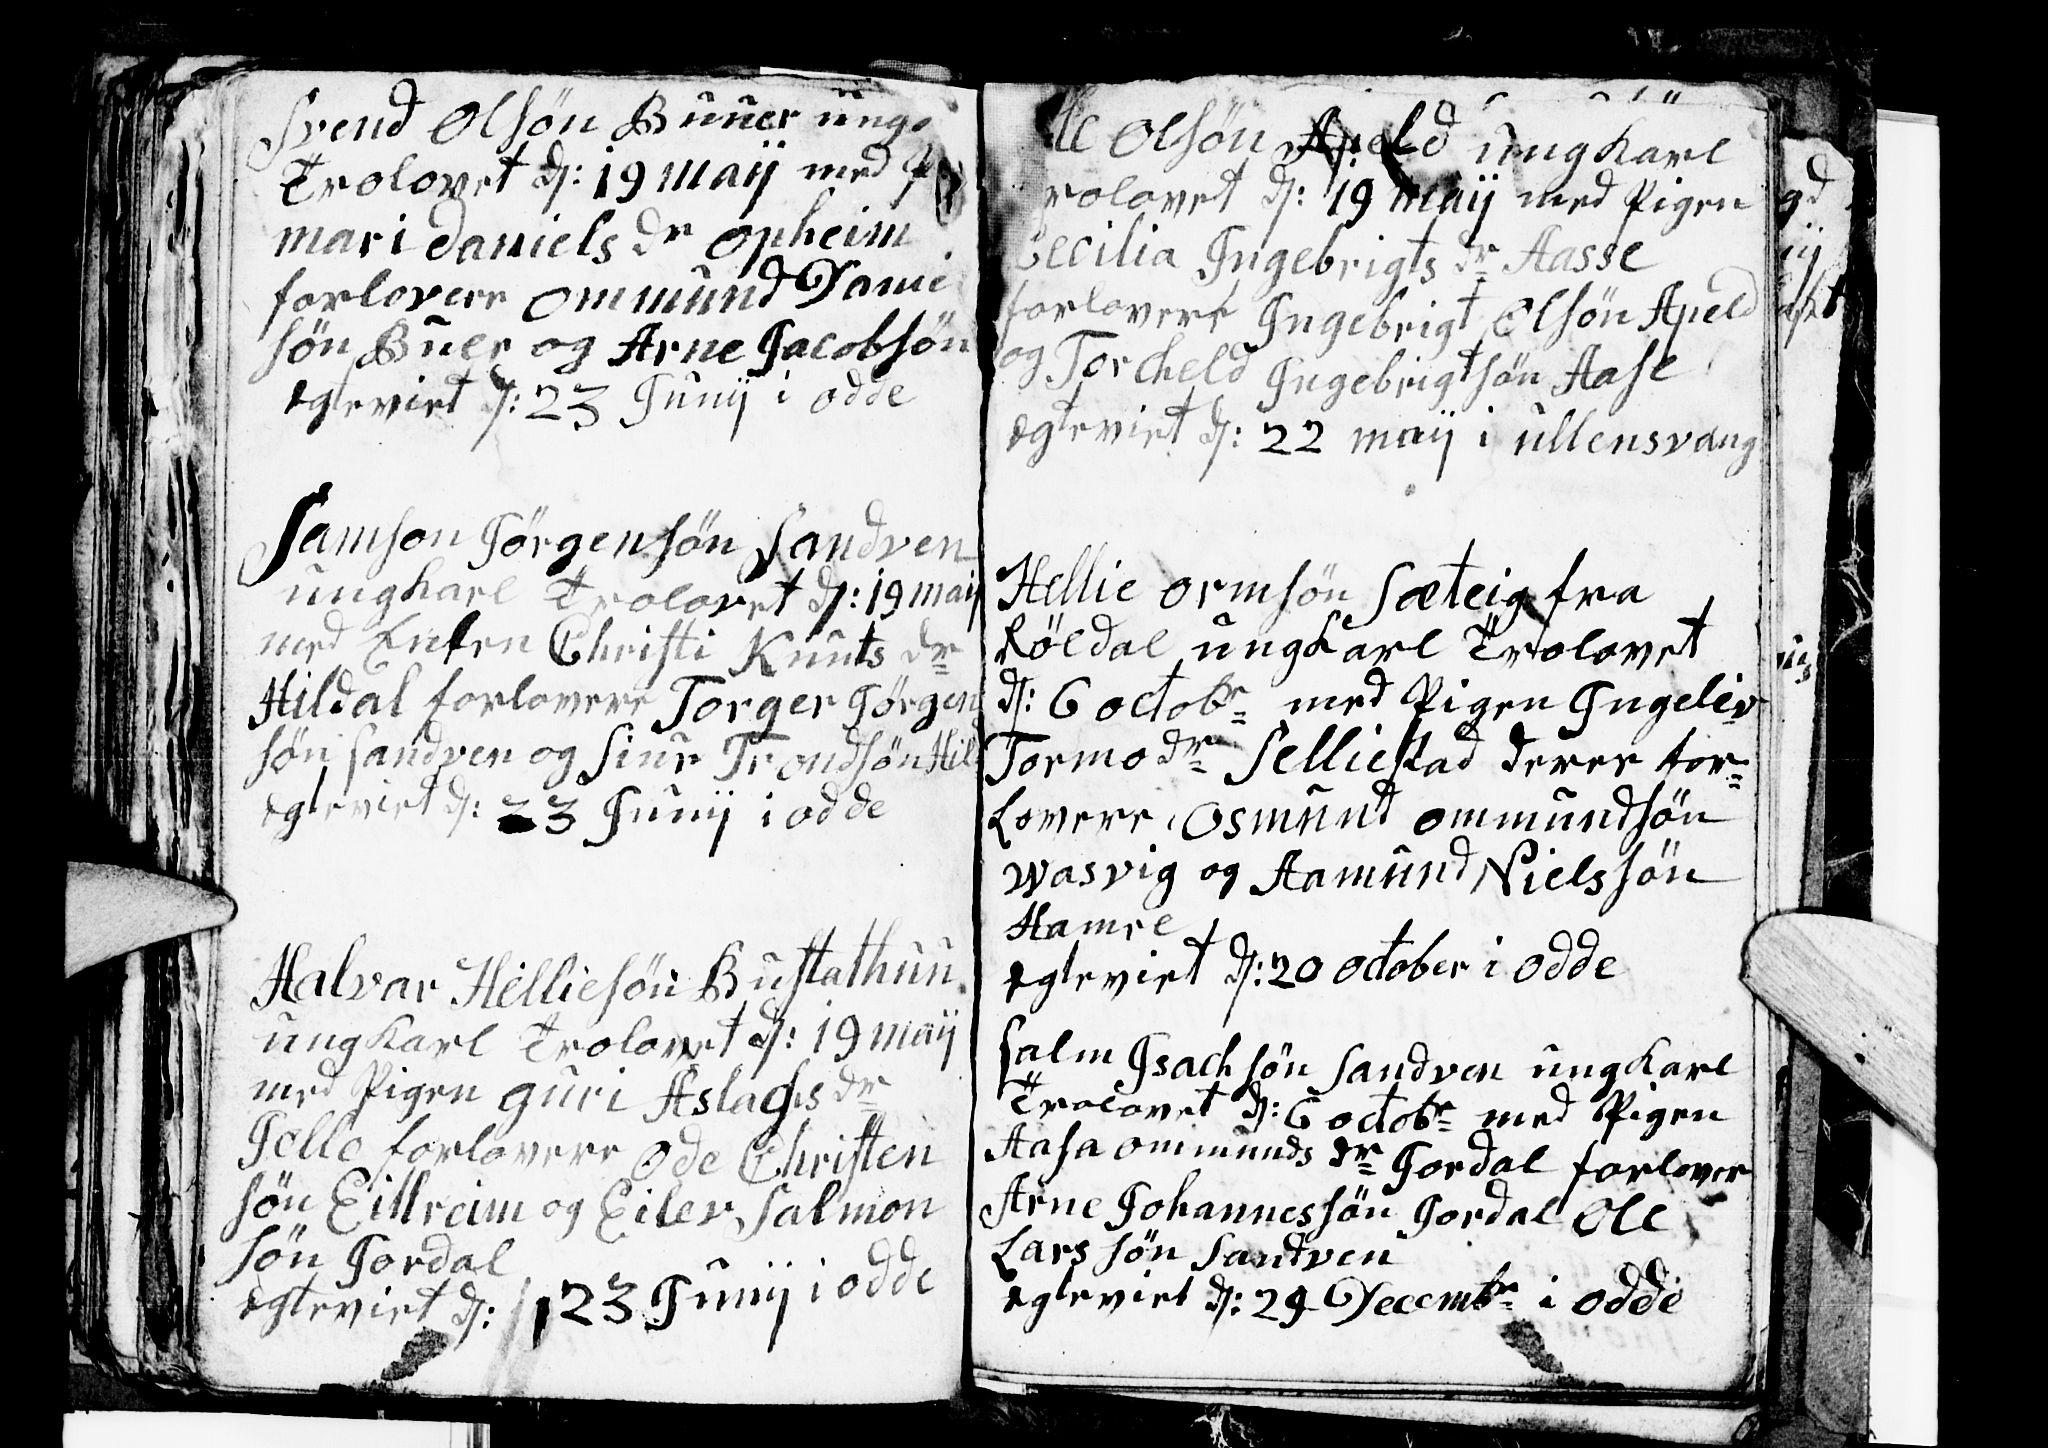 Svend Olsøn Buuer ung
Trolovet d: 19 maij med
mari daniels dr opheim
forlovere ommund Danie
søn Buer og Arne Jacobsøn
egteviet d: 23 Junij i odde
Samson Jørgensøn Sandven
ungkarl Trolovet d: 19 maij
med Enken Christi Knuts dr
Hildal forlovere Torger Jørgen
søn sandven og Siur Trondsøn Hil
egteviet d: 23 Junij i odde
Halvar Helliesøn Bustathun
ungkarl Trolovet d: 19 maij
med Pigen guri Aslachs dr
Jelle forlovere Ode Christen
søn Eitlreim og Eilev Salmon
søn Jordal
egteviet d: 23 Junij i odde
le Olsøn Apeld ungkarl
rolovet d: 19 maij med Pigen
Cecilia Ingebrigts dr Aasse
forlovere Ingebrigt Olsøn Apeld
og Torcheld Ingebrigtsøn Aase
egteviet d: 22 maij i ullensvang
Hellie ormsøn Sæteig fra
Røldal ungkarl Trolovet
d: 6 octobr med Pigen Ingeliv
Tormo drSelliestad derer for-
Lovere, Osmund ommundsøn
wasvig og Aamund Nielssøn
Hamre
egteviet d: 20 october i odde
Salm Isachsøn Sandven ungkarl
Trolovet d: 6 octobr med Pigen
Aasa ommunds dr Jordal forlover
Arne Johannessøn Jordal Ole
Lars søn Sandven
egteviet d: 29 Decembr i odde